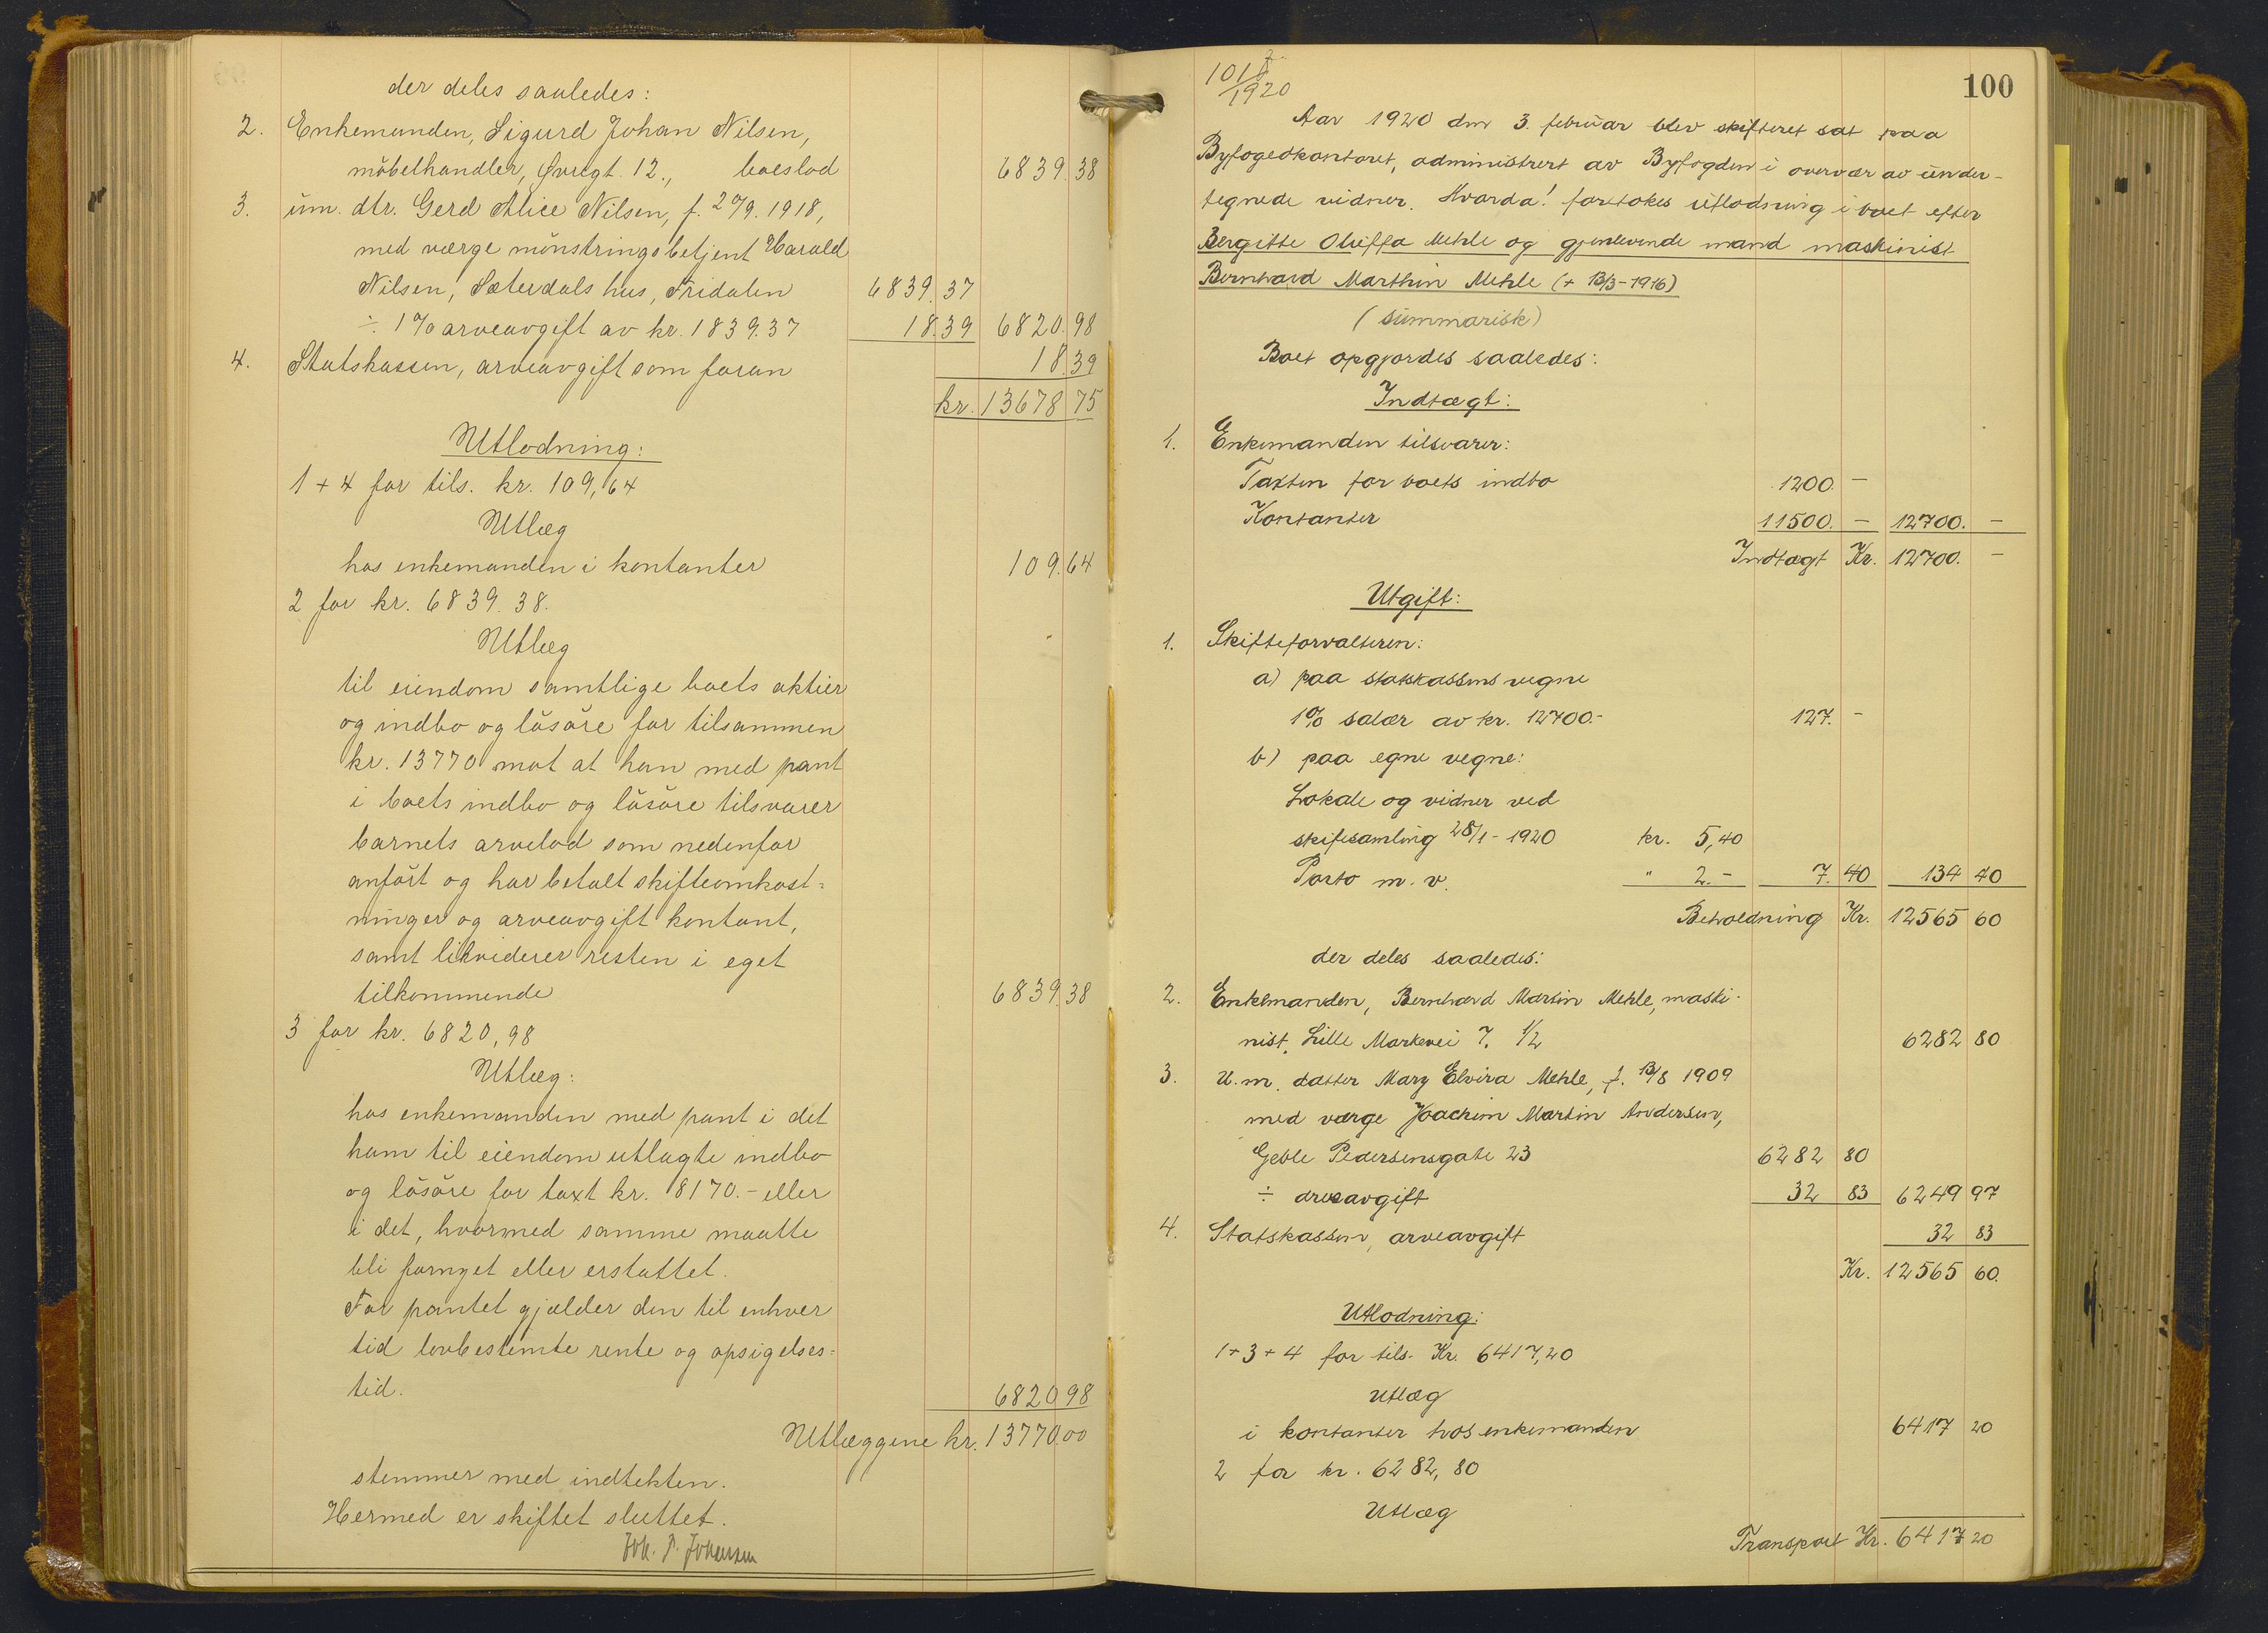 der deles saaledes:
2. Enkemanden, Sigurd Johan Nilsen,
möbelhandler, Øvregt. 12., boeslod 6839.38
3. um. dtr. Gerd Alice Nilsen, f. 27/9. 1918,
med værge mönstringsbetjent Harald
Nilsen, Sæterdals hus, Fridalen 6839.37
÷ 1% arveavgift av kr. 1839.37 18.39 6820.98
4. Statskassen, arveavgift som foran 18.39
kr. 13678 75
Utlodning:
1 + 4 for tils. kr. 109,64
Utlæg
hos enkemanden i kontanter 109.64
2 for kr. 6839.38.
Utlæg
til eiendom samtlige boets aktier
og indbo og lösöre for tilsammen
kr. 13770 mot at han med pant
i boets indbo og lösöre tilsvarer
barnets arvelod som nedenfor
anfört og har betalt skifteomkost=
ninger og arveavgift kontant,
samt likviderer resten i eget
tilkommende 6839.38
3 for kr. 6820,98
Utlæg:
hos enkemanden med pant i det
ham til eiendom utlagte indbo
og lösöre for taxt kr. 8170.- eller
i det, hvormed samme maatte
bli fornyet eller erstattet.
For pantet gjælder den til enhver
tid lovbestemte rente og opsigelses=
tid. 6820 98
Utlæggene kr. 13770.00
stemmer med indtekten.
Hermed er skiftet sluttet.
Joh. P. Johansen
100
/1920
Aar 1920 den 3. februar blev skifteret sat paa
Byfogedkontoret, administrert av Byfogden i overvær av under-
tegnede vidner. Hvorda! foretokes utlodning i boet efter
Bergitte Oliffa Mehle og gjenlevende mand maskinist
Bernhard Marthin Mehle (+ 13/3-1916)
(summarisk)
Boet opgjordes saaledes:
Indtægt:
1. Enkemanden tilsvarer:
Taxten for boets indbo 1200. -
Kontanter 11500. - 12700. -
Indtægt Kr. 12700. -
Utgift:
1. Skifteforvalteren:
a) paa statskassens vegne
1% salær av kr. 12700.- 127. -
b) paa egne vegne:
Lokale og vidner ved
skiftesamling 28/1 - 1920 kr. 5,40
Porto m. v. " 2.- 7. 40 134 40
Beholdning Kr. 12565 60
der deles saaledes:
2. Enkemanden, Bernhard Martin Mehle, maski-
nist, Lille Markevei 7. 1/2 6282 80
3. U.m. datter Mary Elvira Mehle, f. 13/8 1909
med værge Joachim Martin Andersen,
Geble Pedersensgate 23 6282 80
÷ arveavgift 32 83 6249 97
4. Statskassen, arveavgift 32 83
Kr. 12565 60.
Utlodning:
1+3+4 for tils. Kr. 6417,20
Utlæg
i kontanter hos enkemanden 6417 20
2 for kr. 6282,80
Utlæg
Transport Kr. 6417 20